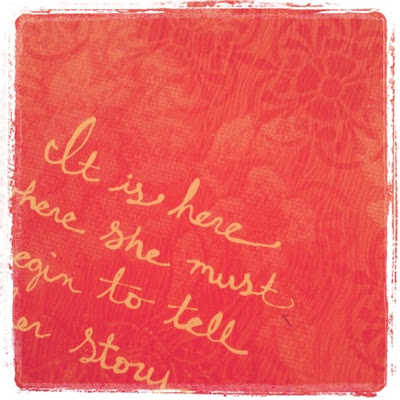 It is here
where she must
egin to tell
er story